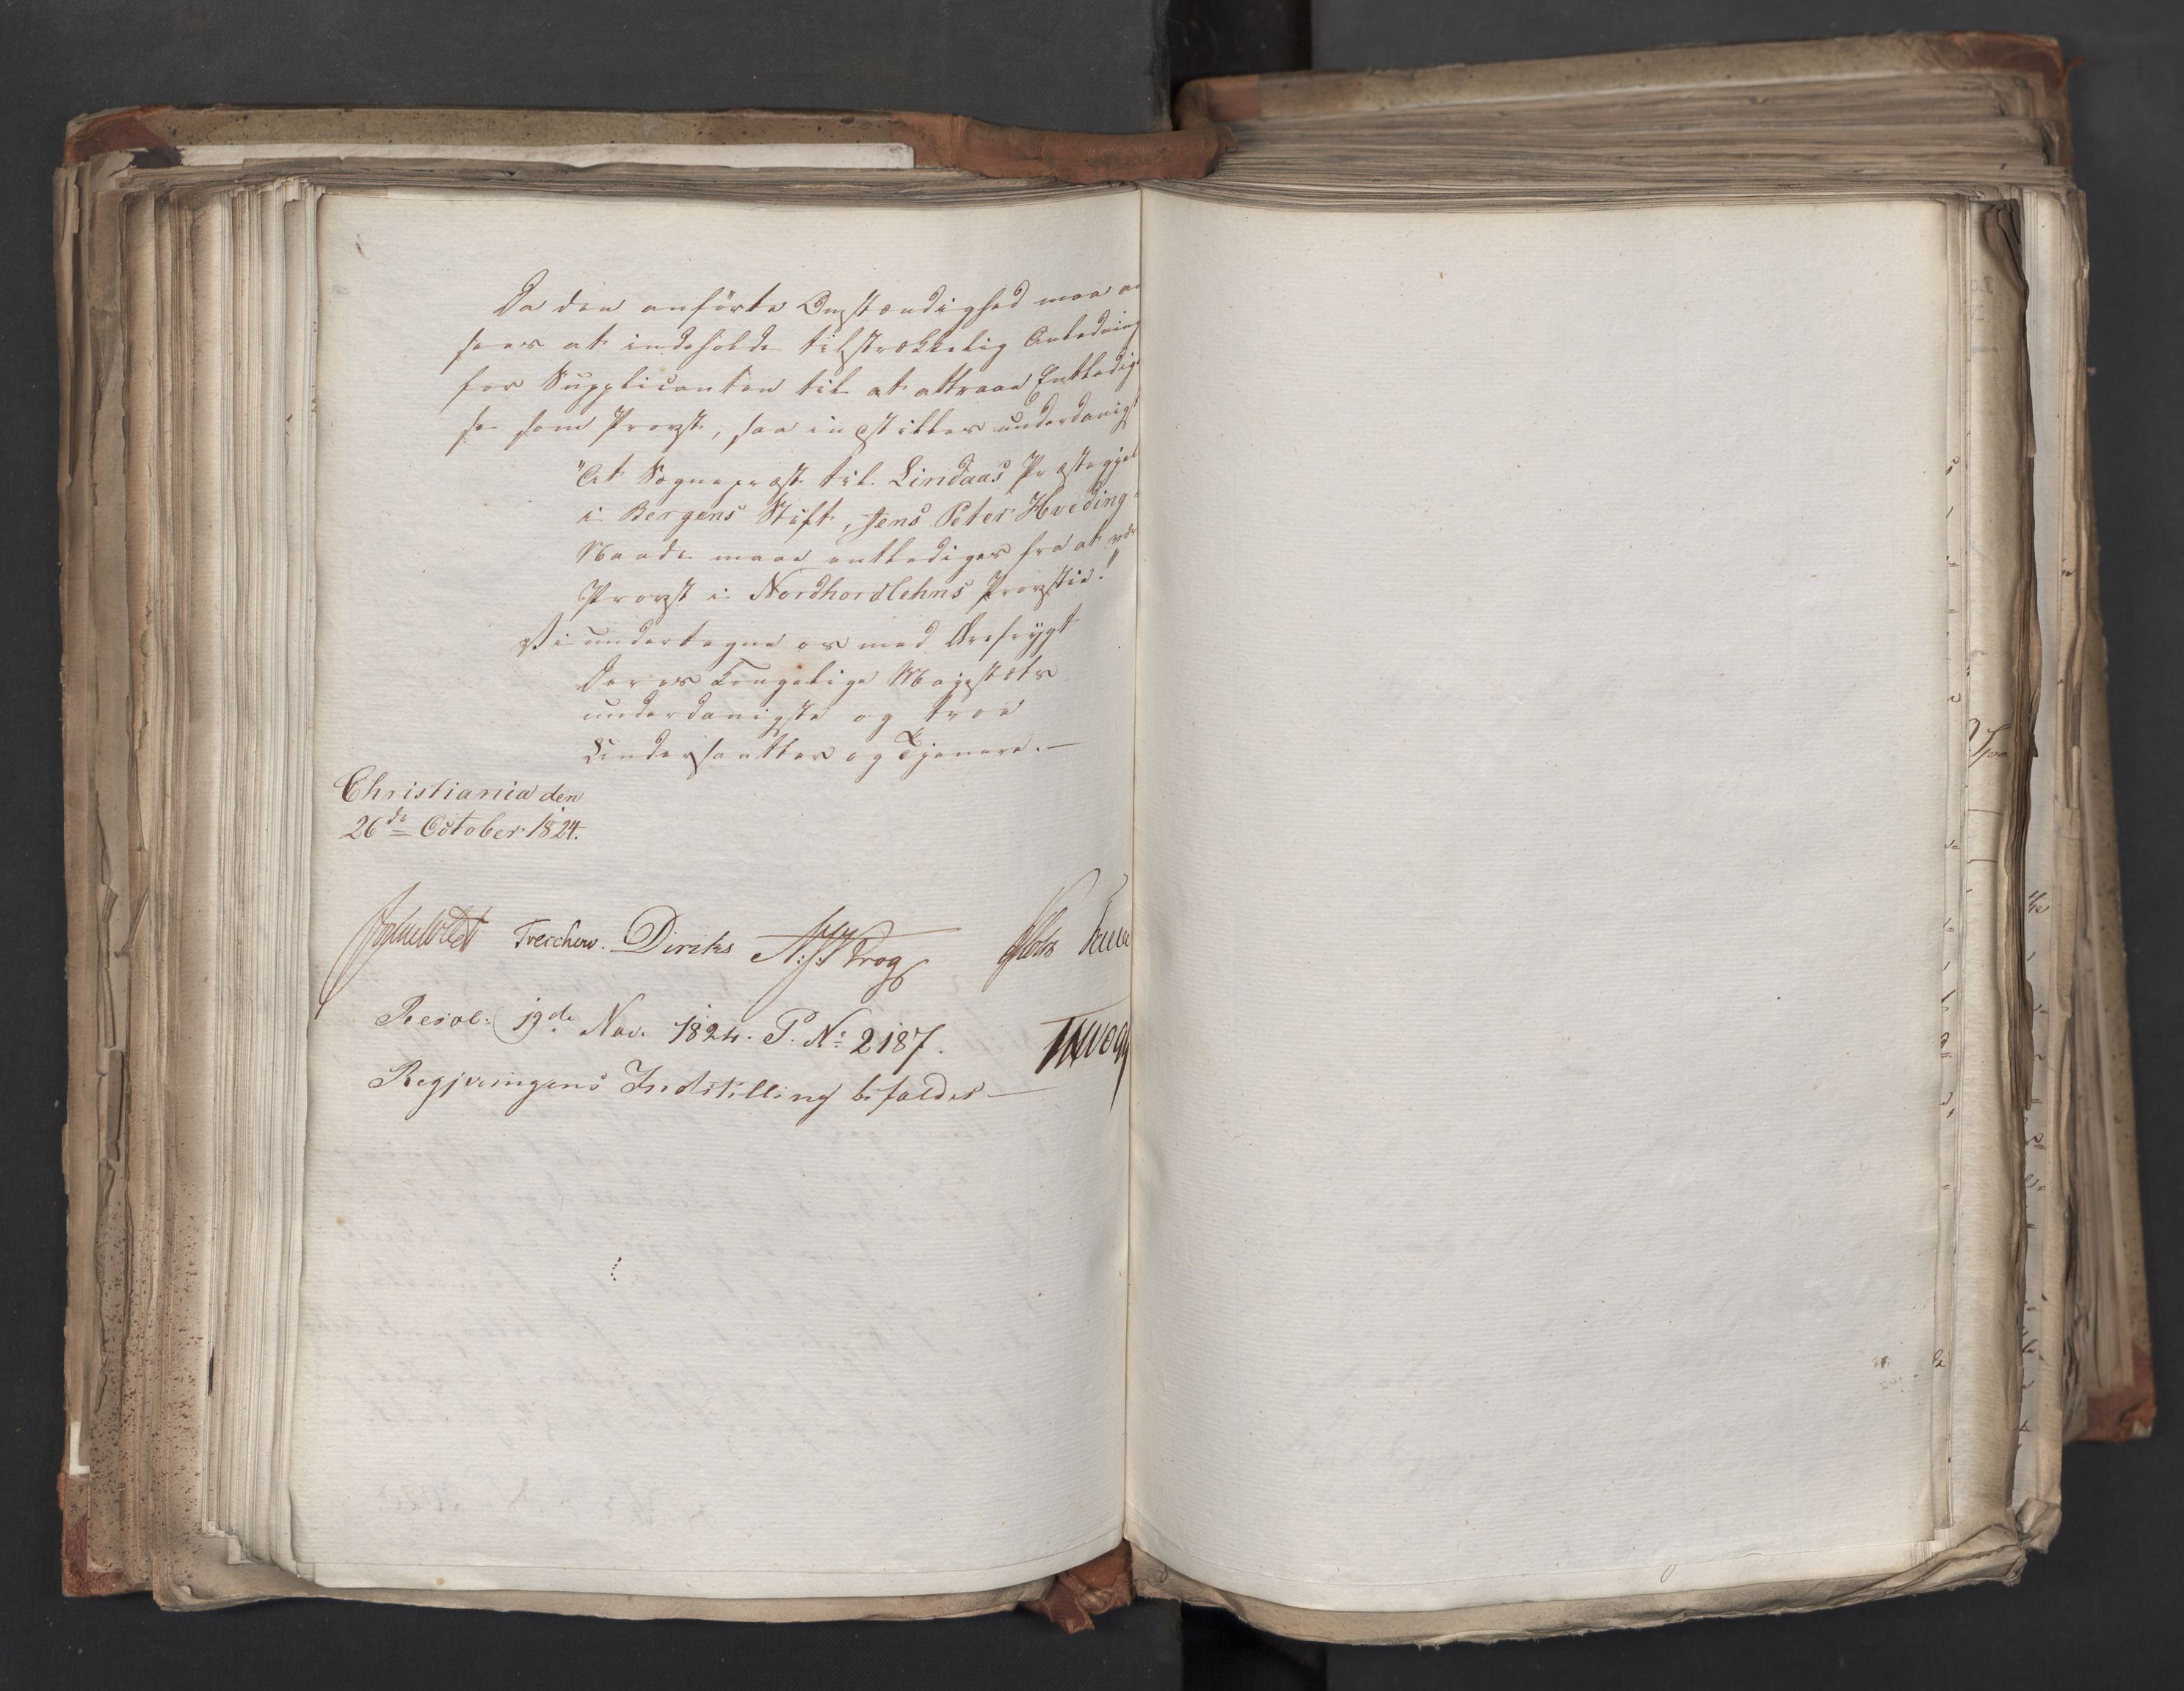 Da den anførte Omstændighed maa an
sees at indeholde tilstrækkelig Anledning
for Supplicanten til at attraae Entledigel
se som Provst, saa indstilles underdanigst
"At Sognepræst til Lindaas Præstegjel
i Bergens Stift, Jens Peter Hveding
Naade maae entlediges fra at være
Provst i Nordhordlehns Provstie."
Vi undertegne os med Ærefrygt
Deres Kongelige Majestæts
underdanigste og troe
Undersaatter og Tjenere.—
Christiania den
26de October 1824.
Treschow. Diriks Krog
Resol: 19de Nov. 1824. P. No 2187.
Regjeringens Indstilling bifaldes—